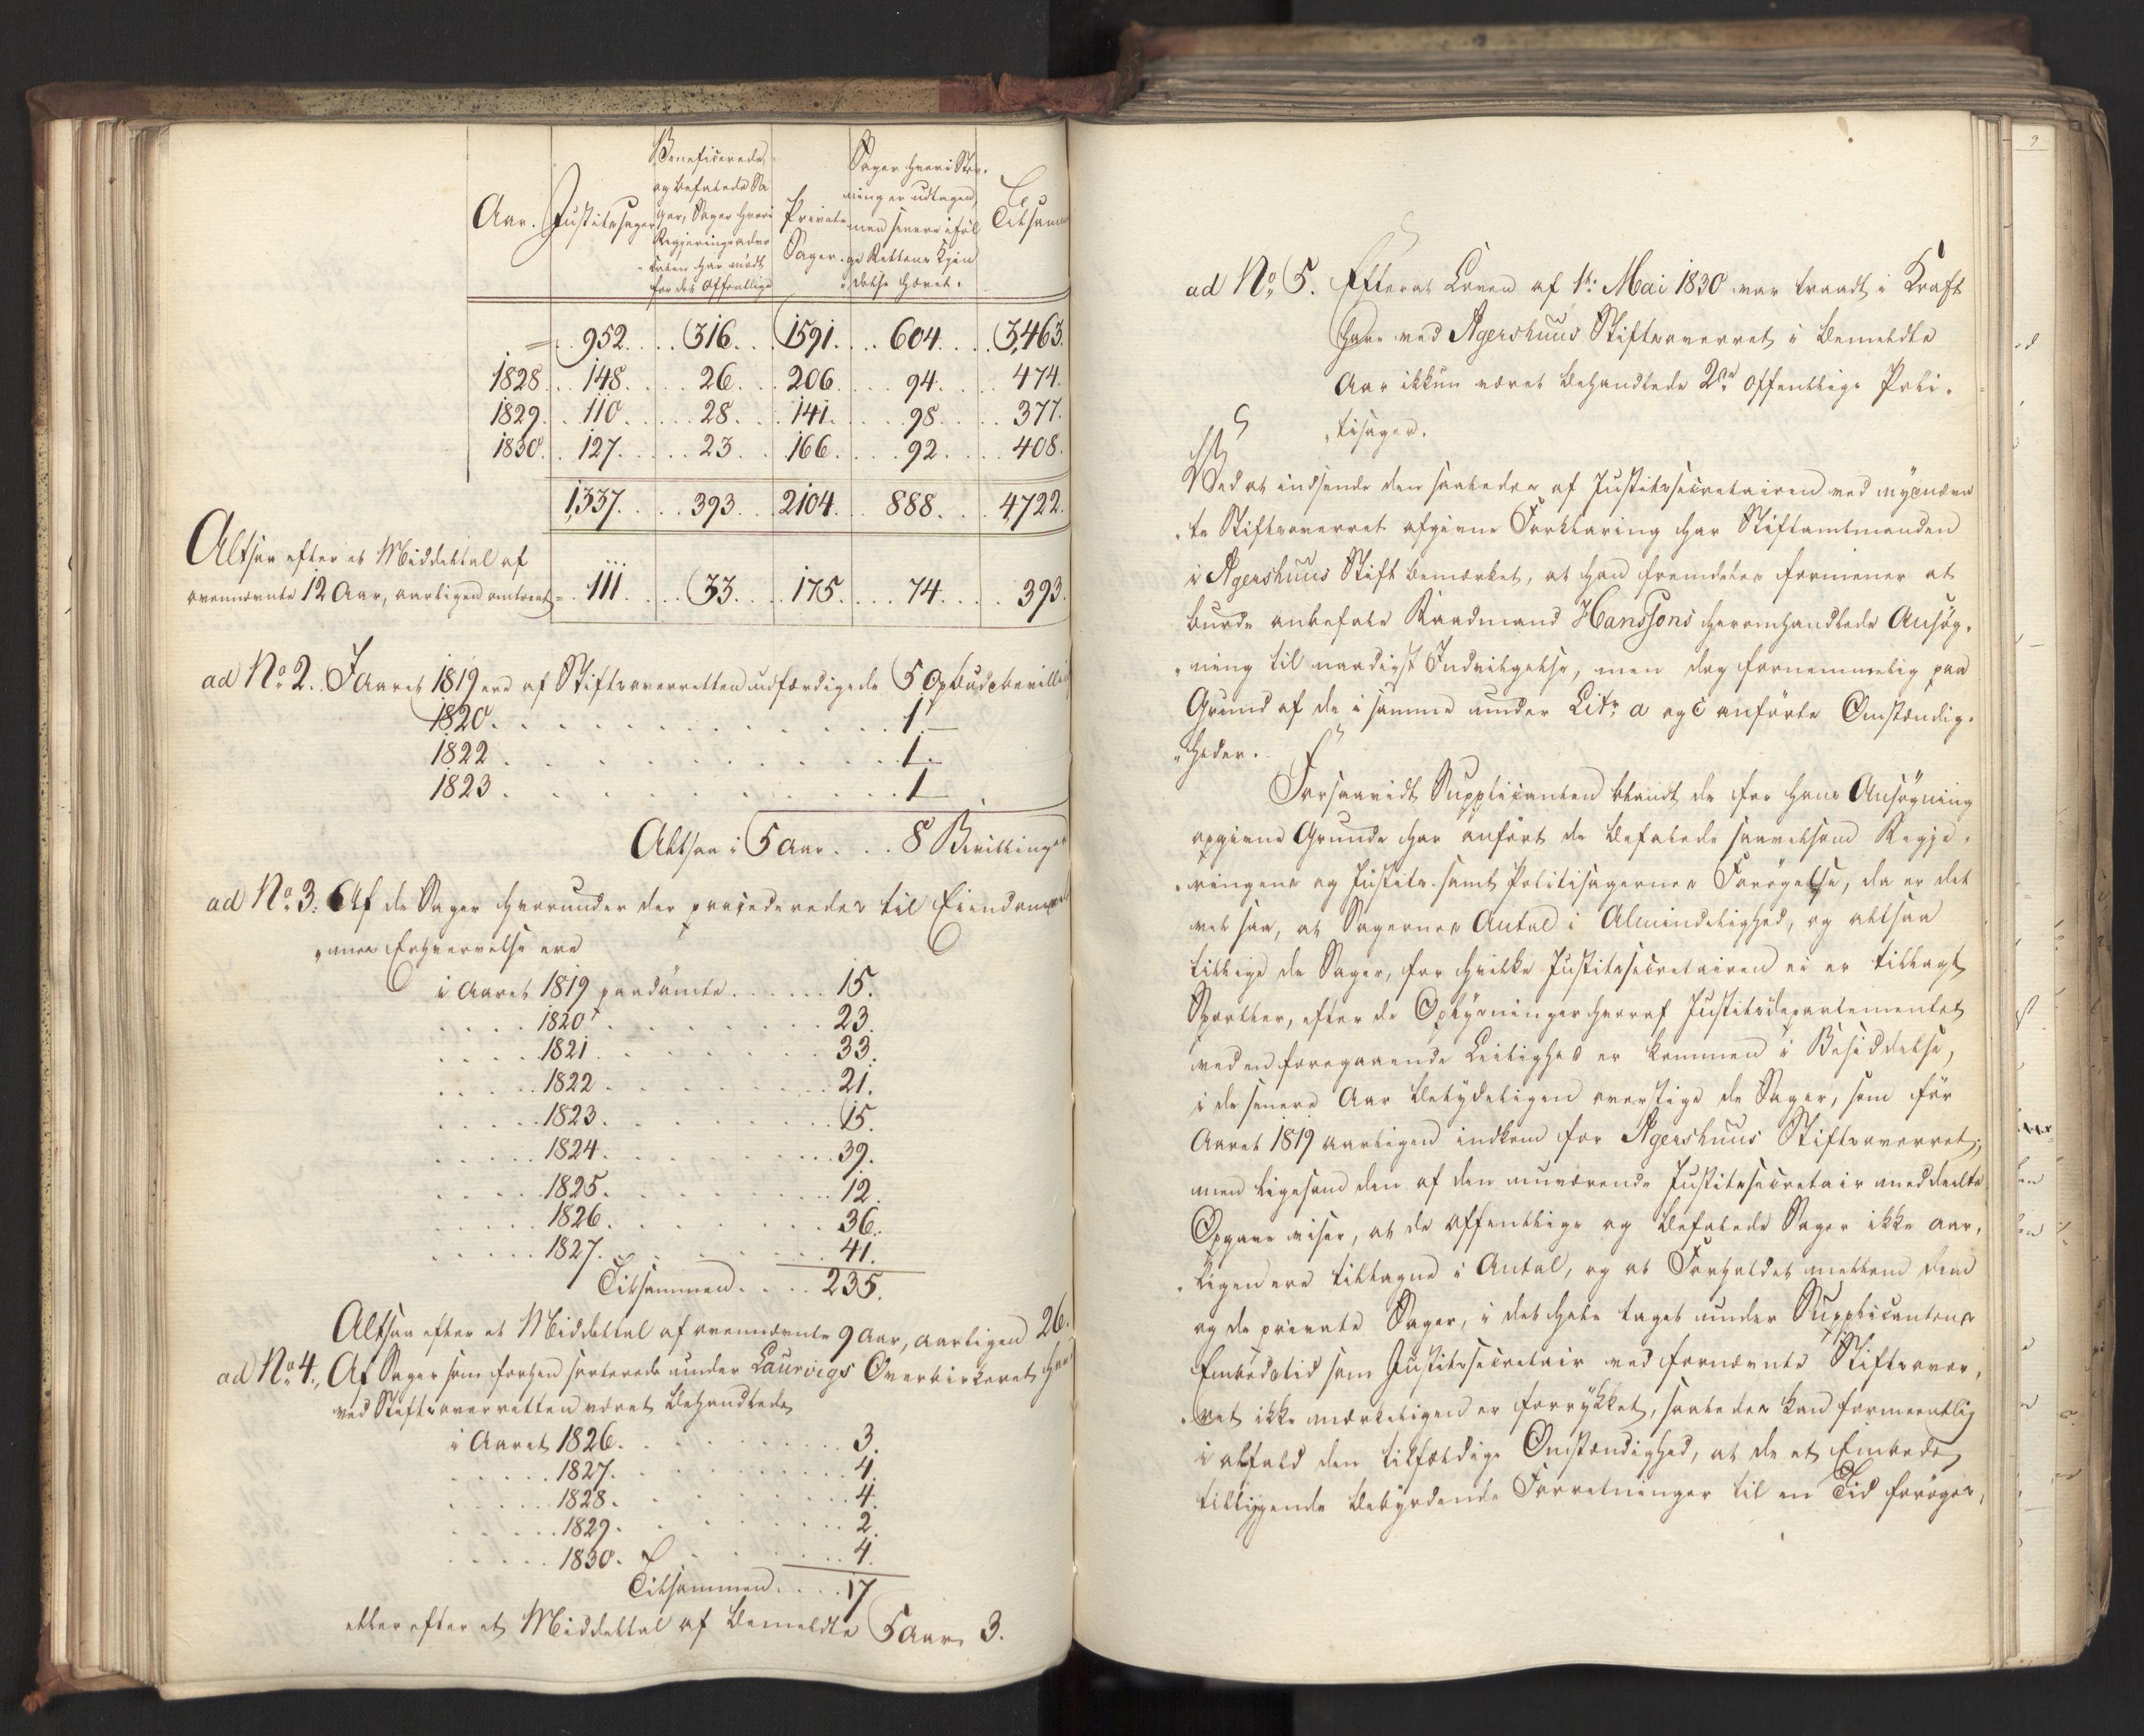 Aar. | Justitssager | Beneficerede og befalede Sager, Sager hvori Regjeringsadvocaten har mødt for det Offentlige | Private Sager. | Sager hvori Stævning er udtagen, men senere ifølge Rettens Kjendelse hævet. | Tilsammen
= . . 952. . . . 316. . . 1591. . . . 604. . . . 3,463.
1828. . . 148. . . . 26. . . 206. . . . 94. . . . 474.
1829. . . 110. . . . 28. . . 141. . . . 98. . . . 377.
1830. . . 127. . . . 23. . . 166. . . . 92. . . . 408.
1,337. . . . 393. . . 2104. . . 888. . . . 4,722.
Altsaa efter et Middeltal af
ovennævnte 12 Aar, aarligen omtrent = . 111. . . . 33. . . . 175. . . . 74. . . . 393.
ad No 2. I Aaret 1819 ere af Stiftsoverretten udfærdigede 5 Opbudsbevillin
1820. . . . . . . . . . . . 1 —
1822. . . . . . . . . . . . 1. —
1823. . . . . . . . . . . . 1 —
Altsaa i 5 Aar. . . 8 Bevillinger
ad No 3. Af de Sager hvorunder der procederedes til Eiendom
mes Erhvervelse ere
i Aaret 1819 paadömte. . . . . . 15.
. . . . 1820 . . . . . . . 23.
. . . . 1821. . . . . . . . 33.
. . . . 1822. . . . . . . . 21.
. . . . 1823. . . . . . . . 15.
. . . . 1824. . . . . . . . 39.
. . . . 1825. . . . . . . . 12.
. . . . 1826. . . . . . . . 36.
. . . . 1827. . . . . . . . 41.
Tilsammen. . . . 235.
Altsaa efter et Middeltal af ovennævnte 9 Aar, aarligen 26.
ad No 4., Af Sager som forhen sorterede under Laurvigs Overbirkeret, har
ved Stiftsoverretten været behandlede
i Aaret 1826. . . . . . . . 3.
. . . . 1827. . . . . . . . 4.
. . . . 1828. . . . . . . . 4.
. . . . 1829. . . . . . . . 2.
. . . . 1830. . . . . . . . 4.
Tilsammen. . . . 17
eller efter et Middeltal af bemeldte 5 Aar 3.
ad No 5. Efterat Loven af 1ste Mai 1830 var traadt i Kraft
have ved Agershuus Stiftsoverret i bemeldte
Aar ikkun været behandlede 2de offentlige Poli-
tisager.
Ved at indsende den saaledes af Justitssecretairen ved nysnævn
te Stiftsoverret afgivne Forklaring har Stiftamtmanden
i Agershuus Stift bemærket, at han fremdeles formener at
burde anbefale Raadmand Hanssons heromhandlede Ansøg-
ning til naadigst Indvilgelse, men dog fornemmelig paa
Grund af de i samme under Litr. a og c anførte Omstændig-
heder.
Forsaavidt Supplicanten blandt de for hans Ansøgning
opgivne Grunde har anført de befalede saavelsom Regje-
ringens og Justits- samt Politisagernes Forøgelse, da er det
vel saa, at Sagernes Antal i Almindelighed, og altsaa
tillige de Sager, for hvilke Justitssecretairen ei er tillagt
Sportler, efter de Oplysninger hvoraf Justitsdepartementet
ved en foregaaende Leilighed er kommen i Besiddelse,
i de senere Aar betydeligen overstige de Sager, som før
Aaret 1819 aarligen indkom for Agershuus Stiftsoverret;
men ligesom den af den nuværende Justitssecretair meddeelte
Opgave viser, at de offentlige og befalede Sager ikke aar-
ligen ere tiltagne i Antal, og at Forholdet mellem dem
og de private Sager, i det hele taget under Supplicantens
Embedstid som Justitssecretair ved fornævnte Stiftsover-
ret ikke mærkeligen er forrykket, saaledes kan formeentlig
i alfald den tilfældige Omstændighed, at de et Embede
tilliggende bebyrdende Forretninger til en Tid forøges,